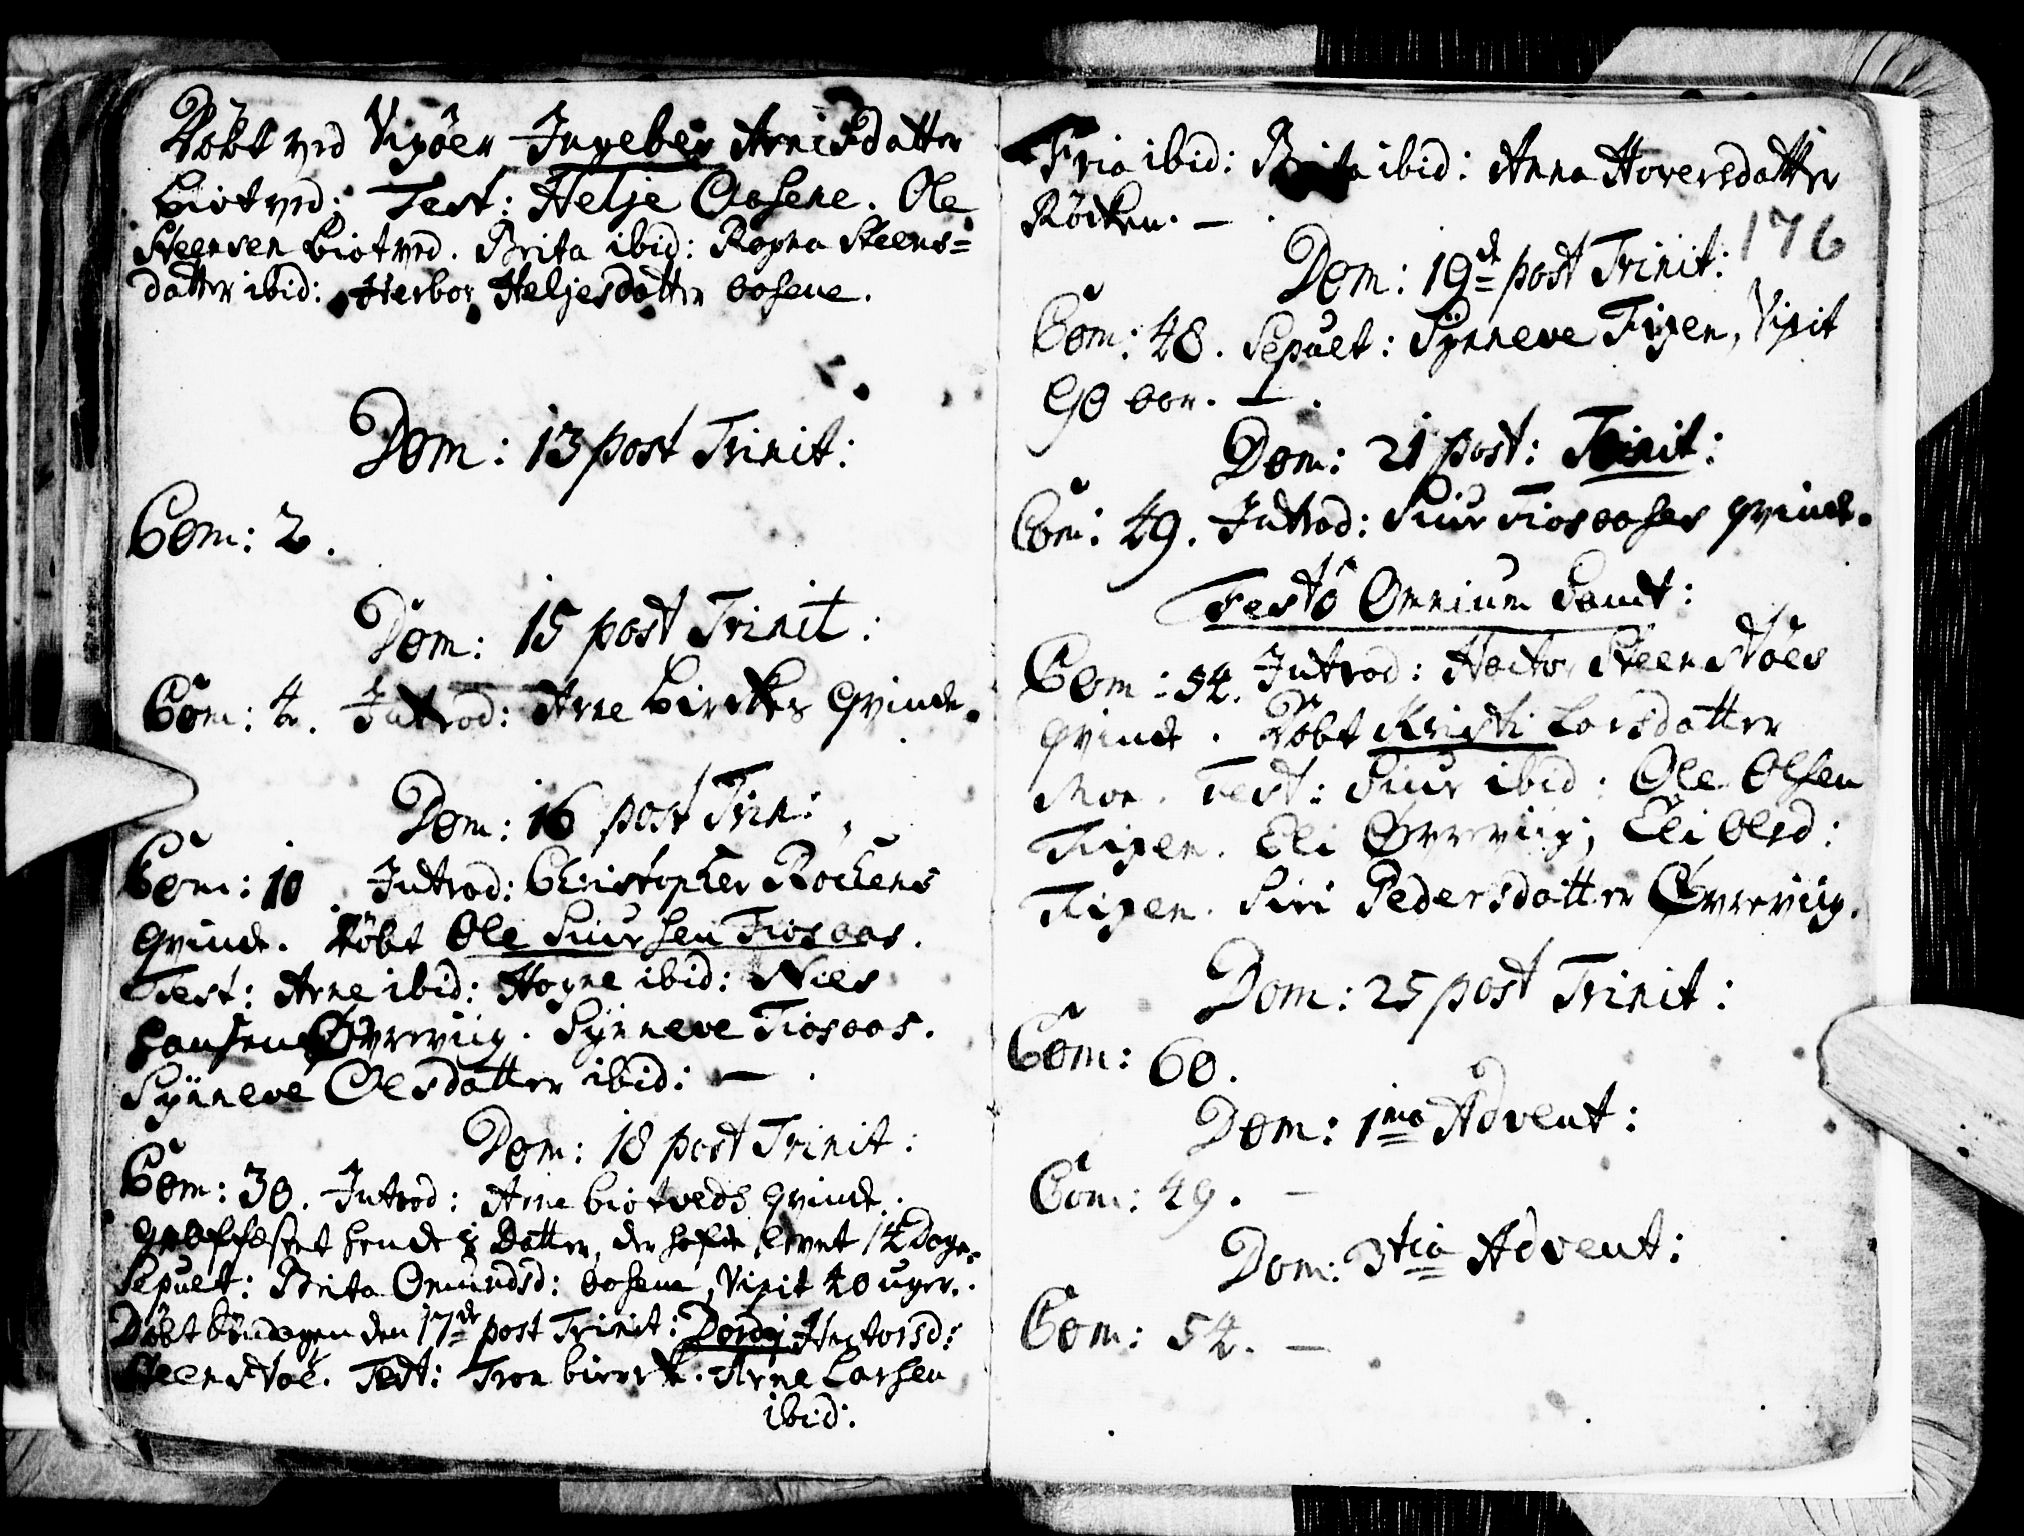 Døbt ved Vigøen Ingebor Arnisdatter
Liotved; Test: Helje Aasene. Ole
Steensen Liotved. Brita ibid: Rogna Steens=
datter ibid: Herbor Heljesdatter Aasene.
Dom: 13 post Trinit:
Com: 2.
Dom: 15 post Trinit:
Com: 4. Introd: Arne Qvinde.
Dom: 16 post Trin:
Com: 10. Introd: Christopher Röckens
Qvinde. Døbt Ole Siursen Fiosaas.
Test: Arne ibid: Hogne ibid: Niels
Hansen Øvreviig. Synneve Fiosaas.
Synneve Olesdatter ibid: —
Dom: 18 post Trinit:
Com: 30. Introd: Arne Liotveds Qvinde.
Datter, der hafde levet 14 Dage.
Sepult: Brita Omundsd: Aasene, Vixit 40 uger.
Døbt Søndagen den 17de post Trinit: Dordej Hectorsd:
Steenstøe. Test: Tron . Arne Larsen
ibid:
Fria ibid: Brita ibid: Anna Hoversdatter
Röcken. —
176
Dom: 19de post Trinit:
Com: 48. Sepult: Synneve Figen, Vixit
90 aar. —
Dom: 21 post: Trinit:
Com: 49. Introd: Siur Fiosaases qvinde.
Festô Omnium Sanct:
Com: 54. Introd: Hector Steenstöes
qvinde. Döbt Kristi Larsdatter
Moe. Test: Siur ibid: Ole Olsen
Figen. Eli Øvreviig; Eli Olsd:
Figen. Siri Pedersdatter Øvreviig.
Dom: 25 post Trinit:
Com: 60.
Dom: 1ma Advent:
Com: 49. —
Dom: 3tia Advent:
Com: 54. —